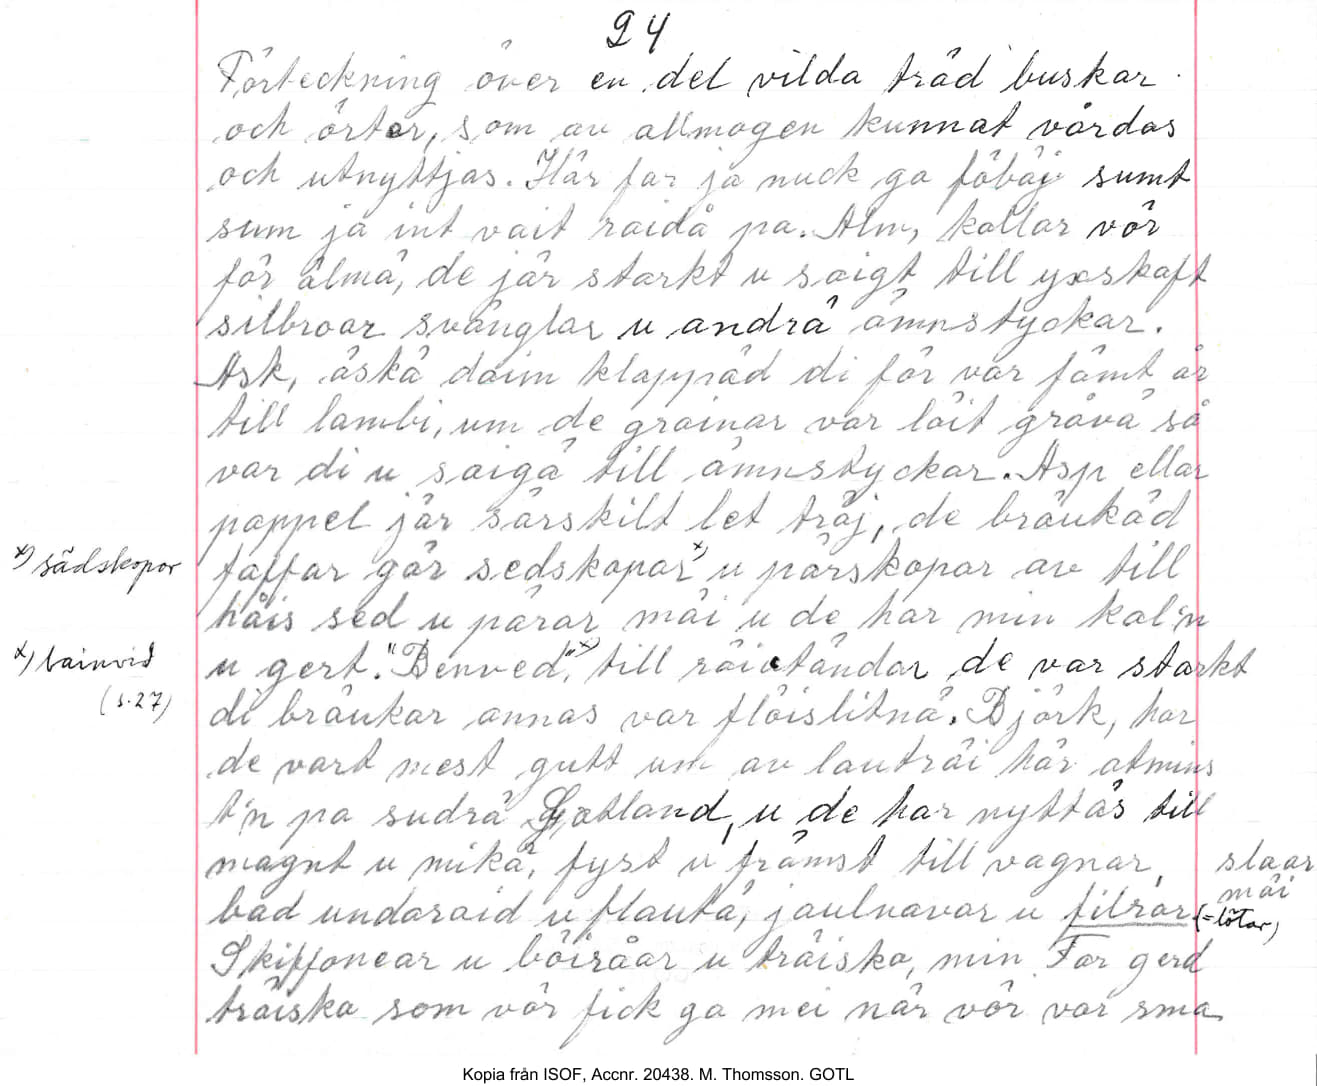 24
Förteckning över en del vilda träd buskar
och örter, som av allmogen kunnat vårdas
och utnyttjas. Här far ja nuck ga föbäj sumt
sum ja int vait raidå pa. Alm, kallar vör
för älmä, de jär starkt u saigt till yxskaft
silbroar svänglar u andrä ämnstyckar.
Ask, äskä daim klappäd di för var fämt år
till lambi, um de grainar var läit gråvä så
var di u saigä till ämnstyckar. Asp ellar
poppel jär särskilt let träj, de bräukäd
faffar gär sedskopar x) u pärskopar av till
x) sädskopor
häis sed u pärar mäi u de har min kal'n
u gert. "Benved," x) till räivtändar de var starkt
x) bainvid
(s.27)
di bräukar annas var fläislitnä. Björk, har
de vart mest gutt um av lauträi här atmins
t'n pa sudrä Gotland, u de har nyttäs till
magnt u mikä, fyst u främst till vagnar,
slaar
mäi
bad undaraid u flautä, jaulnavar u filrar
(=lötar)
Skiffonear u böiråar u träiska, min Far gerd
träiska som vör fick ga mei när vör var sma
Kopia från ISOF, Accnr. 20438. M. Thomsson. GOTL